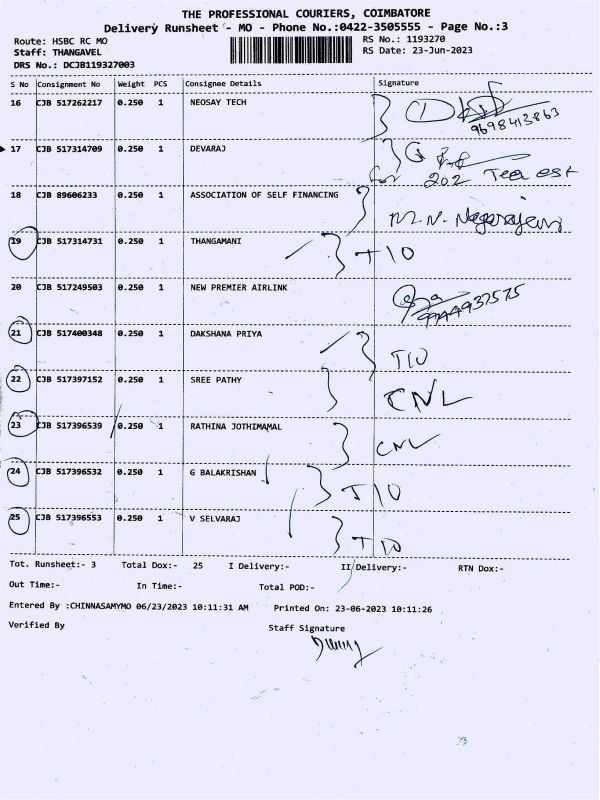 THE PROFESSIONAL COURIERS, COIMBATORE
Delivery Runsheet - MO - Phone No.:0422-3505555 - Page No.:3
Route: HSBC RC MO RS No.: 1193270
Staff: THANGAVEL RS Date: 23-Jun-2023
DRS No.: DCJB119327003
S No Consignment No Weight PCS Consignee Details Signature
16 CJB 517262217 0.250 1 NEOSAY TECH
9698413863
17 CJB 517314709 0.250 1 DEVARAJ
for 202 Tea est
18 CJB 89606233 0.250 1 ASSOCIATION OF SELF FINANCING
M.N. Nagarajan
19 CJB 517314731 0.250 1 THANGAMANI T10
20 CJB 517249503 0.250 1 NEW PREMIER AIRLINK
9944937575
21 CJB 517400348 0.250 1 DAKSHANA PRIYA
T10
22 CJB 517397152 0.250 1 SREE PATHY CNL
23 CJB 517396539 0.250 1 RATHINA JOTHIMAMAL CNL
24 CJB 517396532 0.250 1 G BALAKRISHAN T10
25 CJB 517396553 0.250 1 V SELVARAJ T10
Tot. Runsheet:- 3 Total Dox:- 25 I Delivery:- II Delivery:- RTN Dox:-
Out Time:- In Time:- Total POD:-
Entered By :CHINNASAMYMO 06/23/2023 10:11:31 AM Printed On: 23-06-2023 10:11:26
Verified By Staff Signature